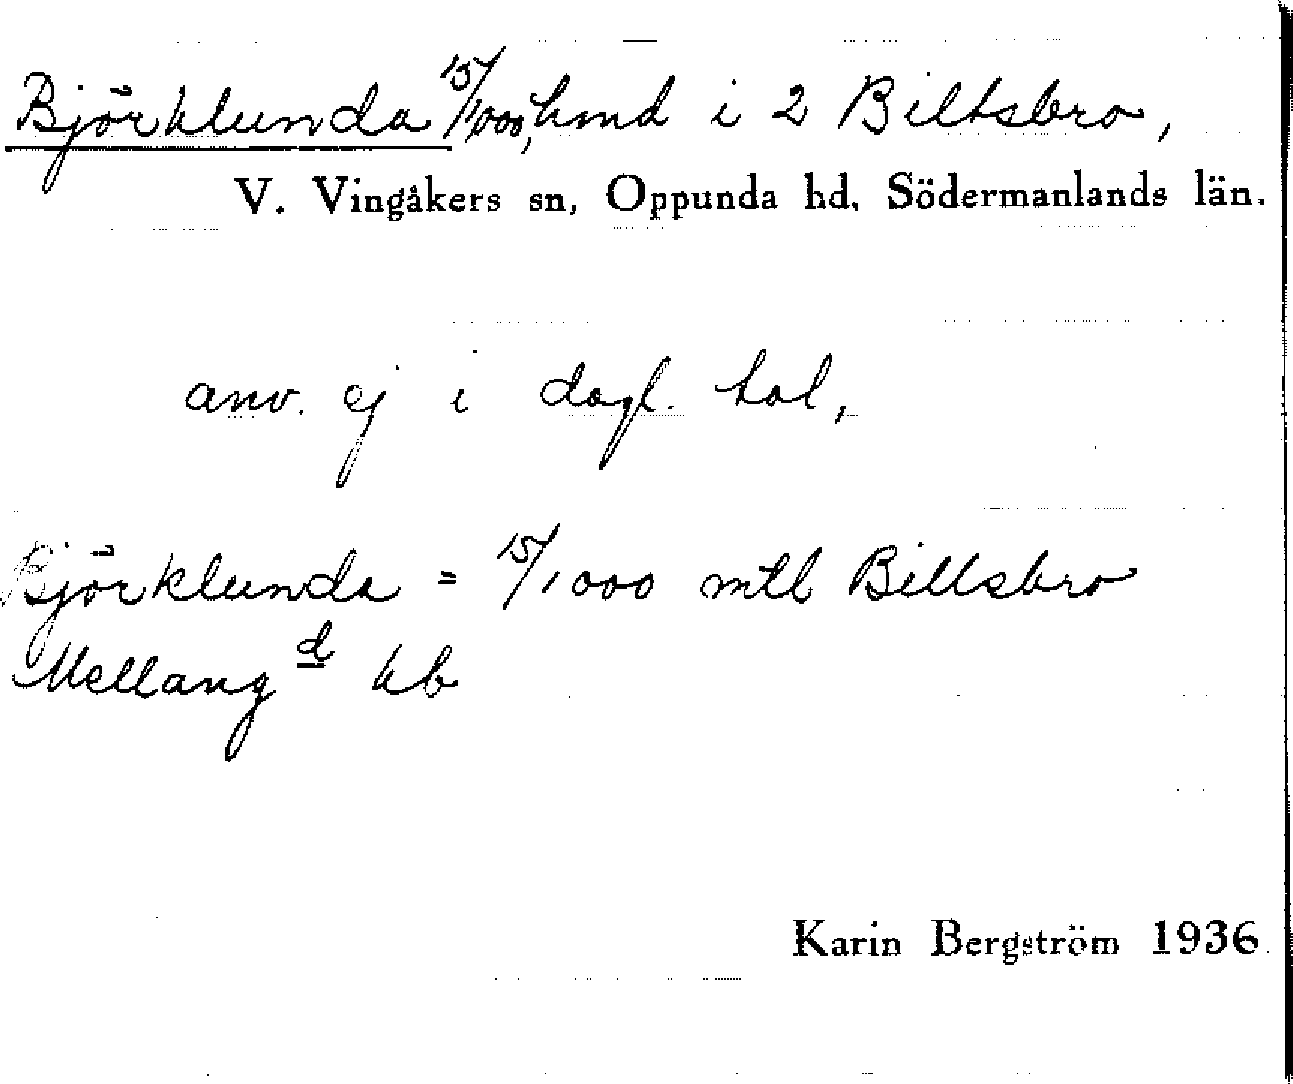 Björklunda 15/1000, hmd i 2 Biltsbro,
V. Vingåkers sn, Oppunda hd, Södermanlands län.
anv. ej i dagl. tal,
Björklunda = 15/1000 mtl Billsbro
Mellang d kb
Karin Bergström 1936.